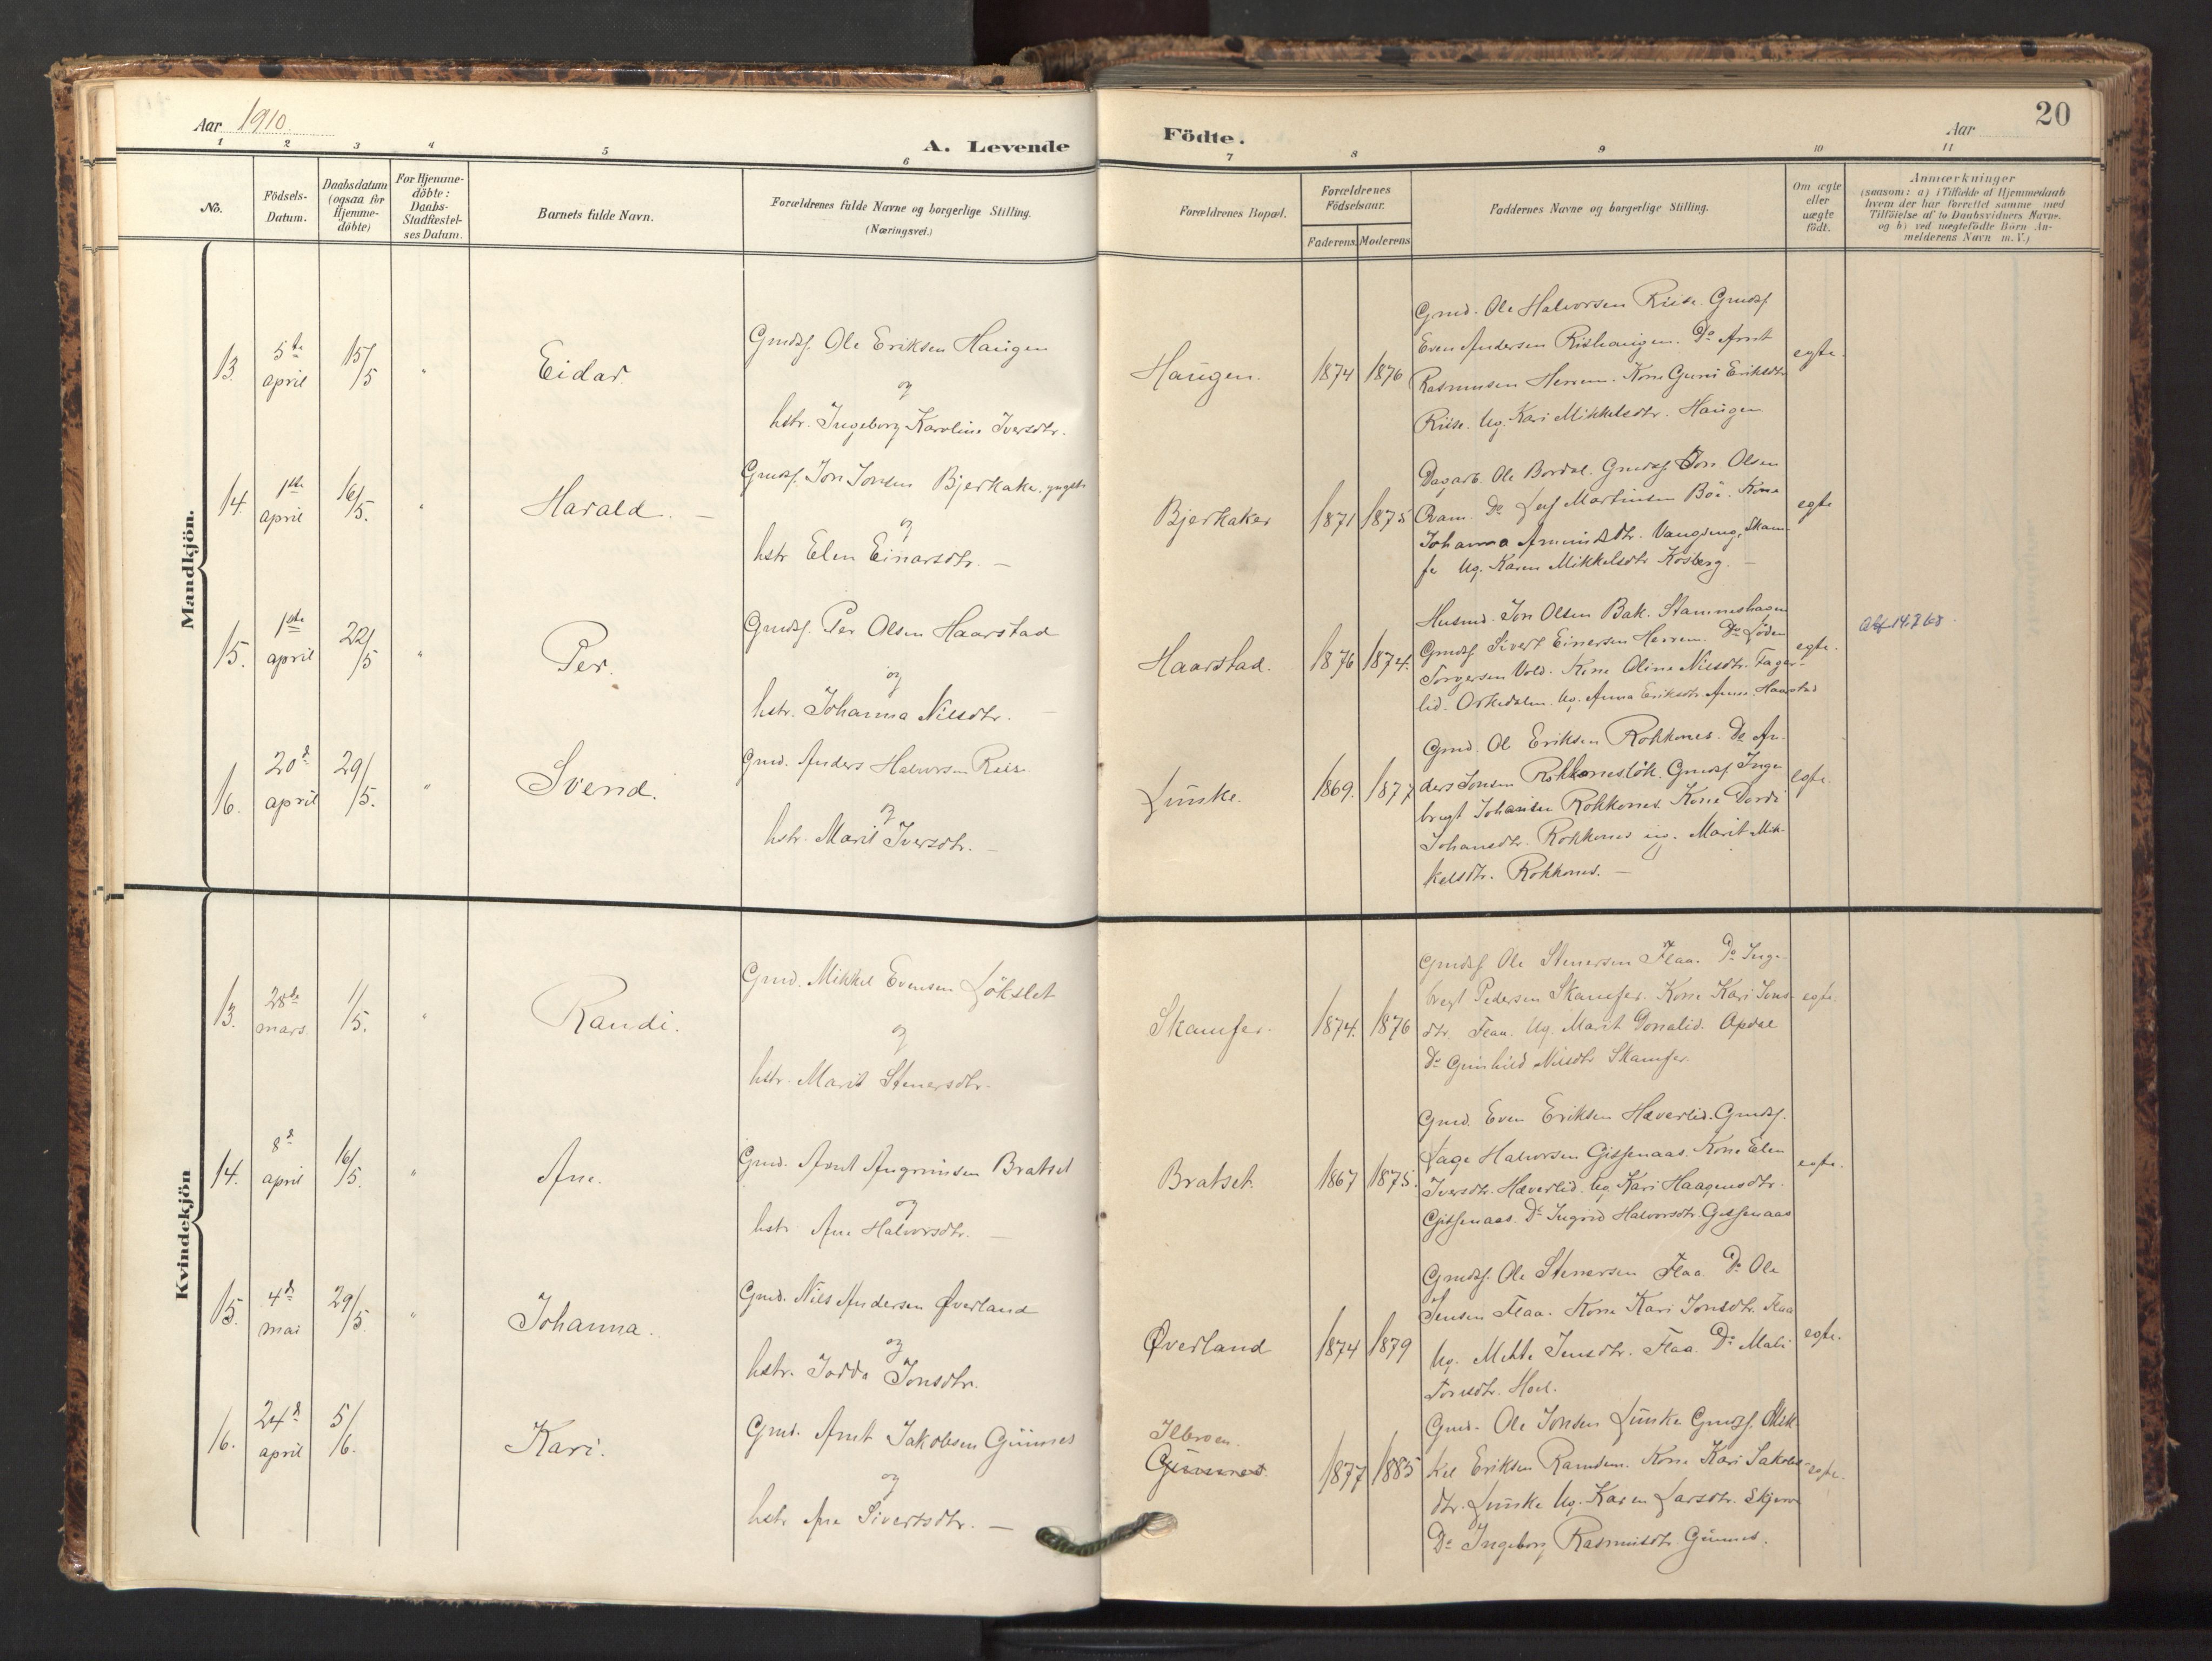 Aar 1910.
A. Levende
Födte.
Aar
20
1 2 3 4 5 6 7 8 9 10 11
No.
Födsels-
Datum.
Daabsdatum
(ogsaa for
Hjemme-
döbte)
For Hjemme-
döbte:
Daabs-
Stadfæstel-
ses Datum.
Barnets fulde Navn.
Forældrenes fulde Navne og borgerlige Stilling.
(Næringsvei.)
Forældrenes Bopæl.
Forældrenes
Födselsaar.
Faderens. Moderens
Faddernes Navne og borgerlige Stilling.
Om ægte
eller
uægte
födt.
Anmærkninger
(saasom: a) i Tilfælde af Hjemmedaab
hvem der har forrettet samme med
Tilföielse af to Daabsvidners Navne.
og b) ved uægtefödte Börn An-
melderens Navn m. V.)
Mandkjön.
13. 5te april 15/5 " Eidar.
Gmdsf. Ole Eriksen Haugen
og
hstr. Ingeborg Karoline Iversdtr.
Haugen. 1874 1876
Gmd. Ole Halvorsen Riise. Gmdsf.
Even Andersen Rishaugen. Do Arnt
Rasmusen Herrem. Kone Guni Eriksdtr
Riise. Ug. Kari Mikkelsdtr. Haugen
egte.
14. 1ste april 16/5. " Harald. –
Gmdsf. Jon Jonsen Bjerkaker, yngste
og
hstr Elen Einarsdtr. –
Bjerkaker 1871 1875
Dagarb. Ole Bordal. Gmdsf. Jon Olsen
Ram. Do Leif Martinsen Böe. Kone
Johanna Amundsdtr. Vangseng, Skam-
fe Ug. Karen Mikkelsdtr Kosberg. –
egte
15. 1ste april 22/5 " Per.
Gmdsf. Per Olsen Haarstad
og
hstr. Johanna Nilsdtr. –
Haarstad. 1876 1874.
Husmd. Jon Olsen Bak. Stammeshagen
Gmdsf Sivert Einersen Herrem. Do Loden
Torgersen Vold. Kone Oline Nilsdtr. Fager-
lid. Orkedalen. Ug. Anna Eriksdtr Haarstad
egte.
Att 14.7.68.
16. 20de april 29/5. " Svend.
Gmd. Anders Halvorsen Riise
og
hstr. Marit Iversdtr. –
Lunke. 1869. 1877
Gmd. Ol Eriksen Rokkones. Do An-
ders Jonsen Rokkonesløk. Gmdsf Inge
brigt Johansen Rokkones. Kone Dordi
Johansdtr. Rokkones ug. Marit Mik-
kelsdtr. Rokkones. –
egte.
Kvindekjön
13. 28de mars 1/5. " Randi.
Gmd. Mikkel Evensen Lökslet
og
hstr. Marit Stenersdtr.
Skamfer. 1874. 1876
Gmdsf Ole Stenersen Flaa. Do Inge-
brigt Pedersen Skamfer. Kone Kari Jons-
dtr. Flaa. Ug. Marit Donalid. Opdal
Do Gunhild Nilsdtr Skamfer.
egte.
14. 8de april 16/5. " Ane.
Gmd. Arnt Angrimsen Bratset
og
hstr Ane Halvorsdtr. –
Bratset. 1867 1875.
Gmd. Even Eriksen Hæverlid. Gmdsf.
Lage Halvorsen Gisfenaas. Kone Elen
Iversdtr. Hæverlid. Ug. Kari Haagensdtr.
Gisfenaas. Do Ingrid Halvorsdtr. Gisfenaas
egte.
15. 4de mai 29/5 " Johanna.
Gmd. Nils Andersen Øverland
og
hstr. Jodda Jonsdtr.
Øverland 1874 1879
Gmdsf. Ole Stenersen Flaa. Do Ole
Jensen Flaa. Kone Kari Jonsdtr. Flaa
Ug. Mette Jensdtr. Flaa. Do Mali
Tonesdtr. Hoel.
egte.
16. 24de april 5/6. Kari.
Gmd. Arnt Jakobsen Gunnes
og
hstr Ane Sivertsdtr. –
Ilbroen.
Gunnes. 1877 1885
Gmd. Ole Jonsen Lunke Gmdsf. Mik-
kel Eriksen Ramsem. Kone Kari Jakobs-
dtr. Lunke Ug. Karen Larsdtr. Skjerve
Do Ingeborg Rasmusdtr. Gunnes.
egte.